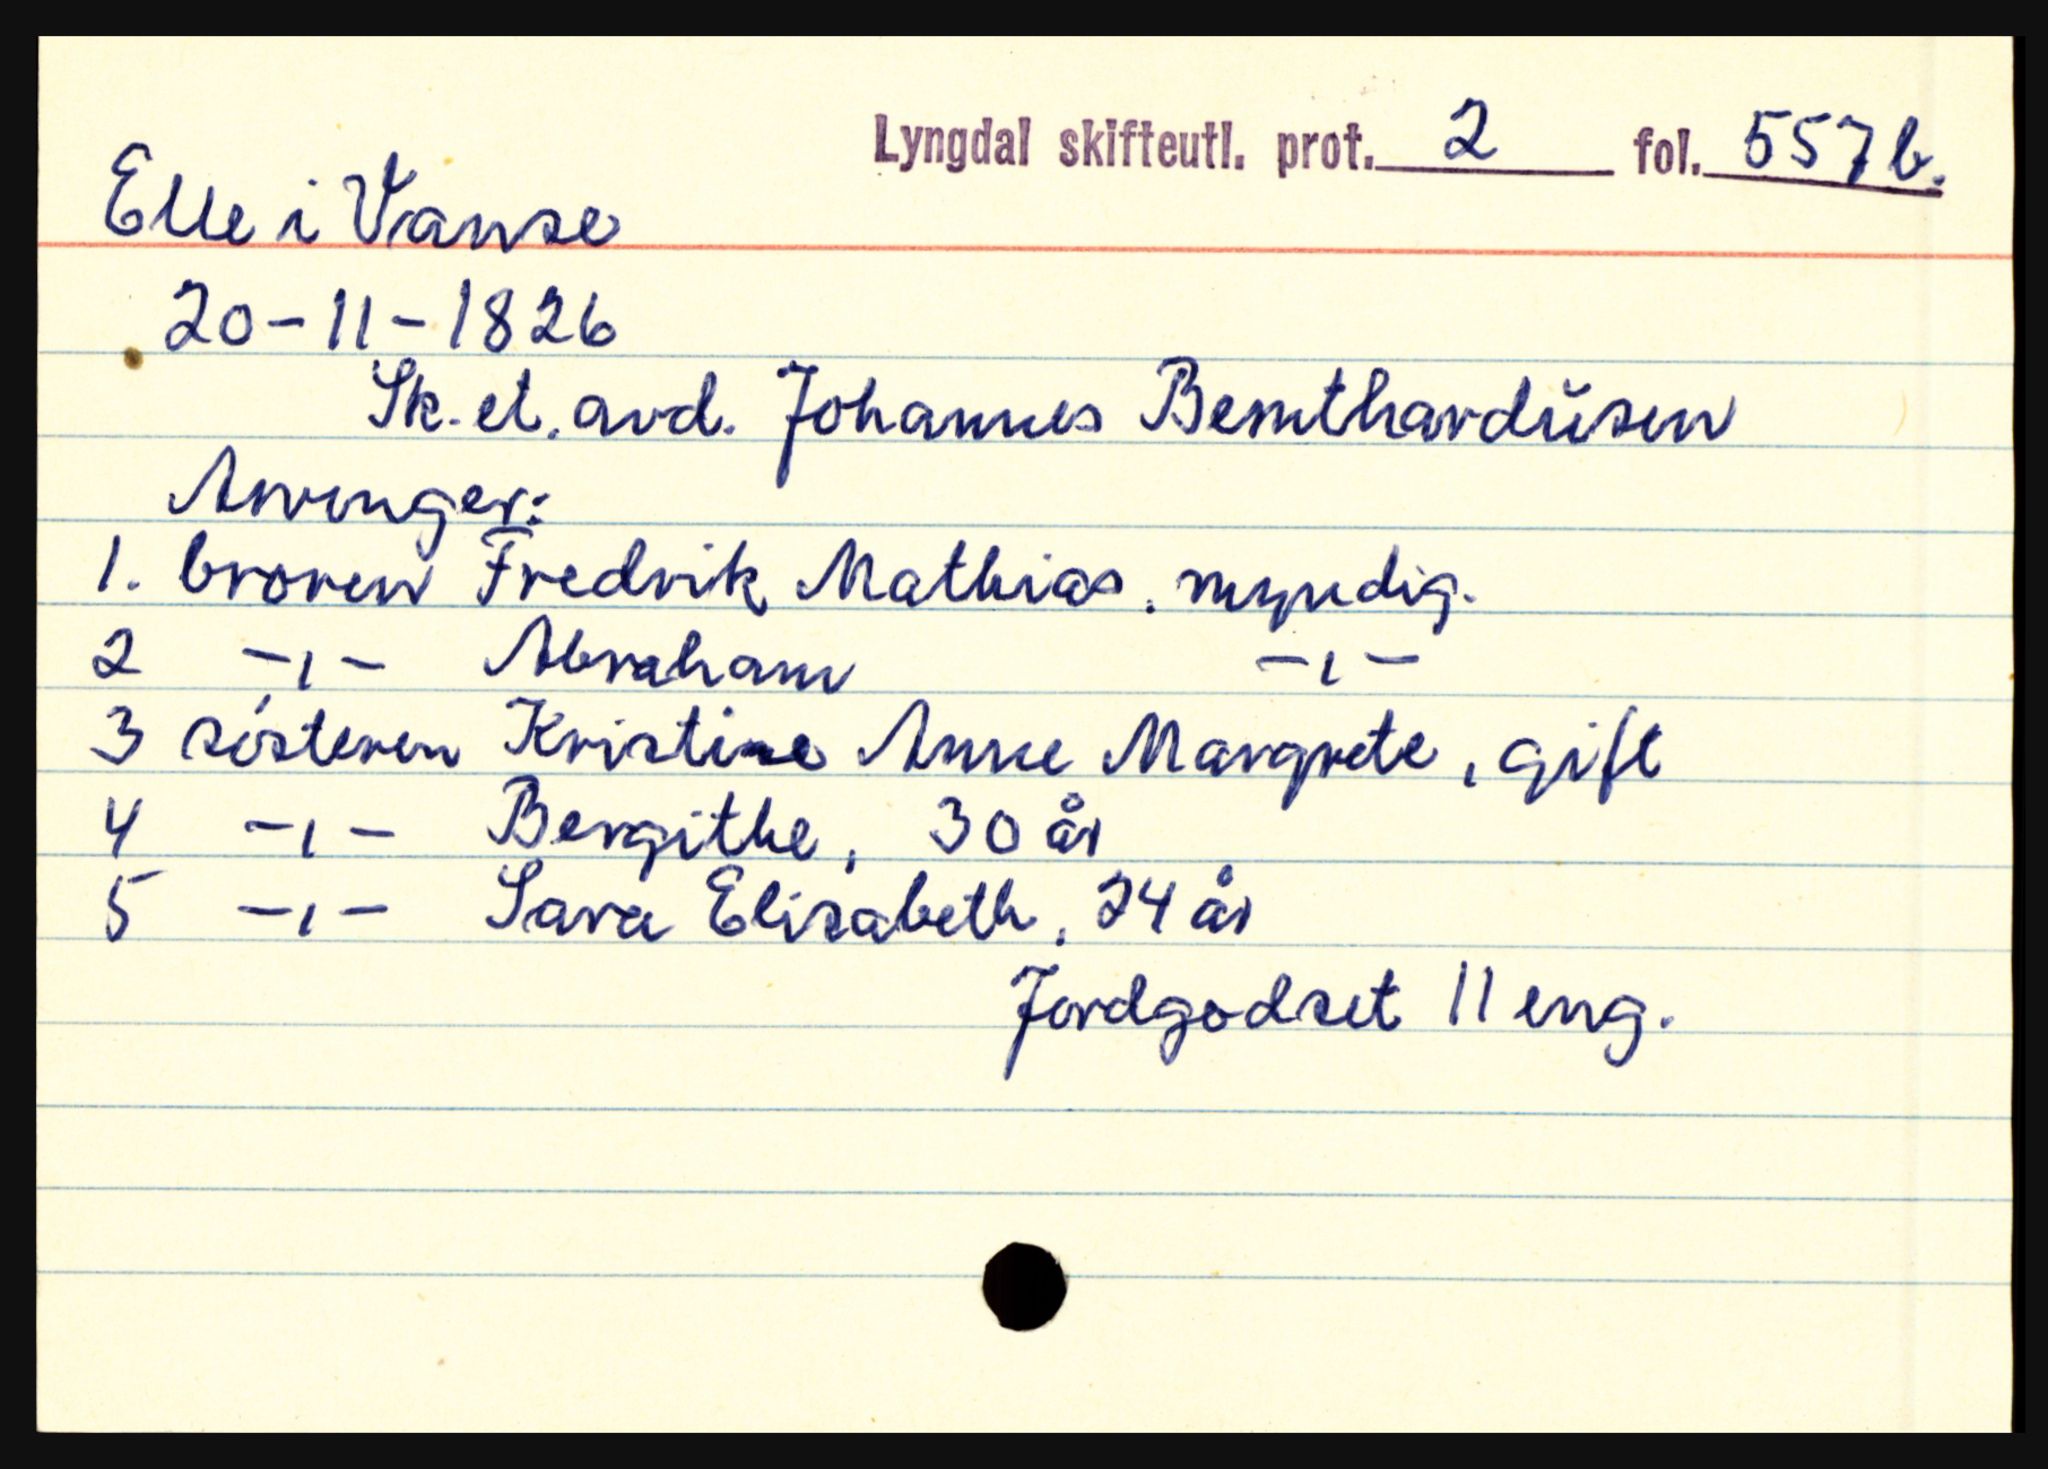 Lyngdal skifteutl. prot. 2 fol. 557b.
Elle i Vanse
20-11-1826
Sk. et. avd. Johannes Bernthardŭsen
Arvinger:
1. broren Fredrik Mathias, myndig.
2 -ı- Abraham -ı-
3 sósteren Kristine Anne Margrete, gift
4 -ı- Bergithe, 30 år
5 -ı- Sara Elisabeth, 24 år
Jordgodset 11 eng.